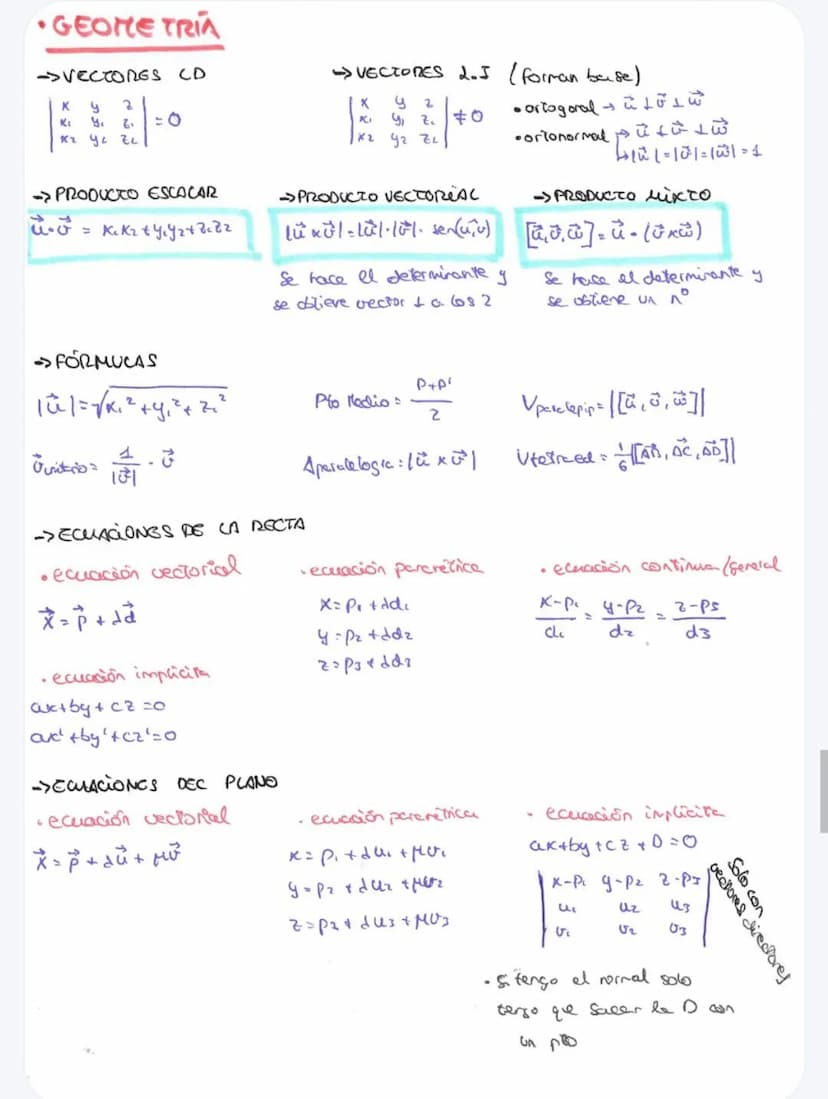 • GEOMETRÍA
→ VECTORES LD
| x y z |
| x₁ y₁ z₁ | = 0
| x₂ y₂ z₂ |
→ VECTORES L.I (forman base)
| x y z |
| x₁ y₁ z₁ | ≠ 0
| x₂ y₂ z₂ |
• ortogonal → u⃗ ⊥ v⃗ ⊥ w⃗
• ortonormal → u⃗ ⊥ v⃗ ⊥ w⃗
↳ |u⃗| = |v⃗| = |w⃗| = 1
→ PRODUCTO ESCALAR
u⃗ · v⃗ = x₁x₂ + y₁y₂ + z₁z₂
→ PRODUCTO VECTORIAL
|u⃗ x v⃗| = |u⃗| · |v⃗| · sen(u,v)
Se hace el determinante y
se obtiene vector ⊥ a los 2
→ PRODUCTO MIXTO
[u⃗, v⃗, w⃗] = u⃗ · (v⃗ x w⃗)
Se hace el determinante y
se obtiene un nº
→ FÓRMULAS
|u⃗| = √x₁² + y₁² + z₁²
Pto Medio = P+P' / 2
Vparalepip = |[u⃗, v⃗, w⃗]|
v⃗unitario = 1/|v⃗| · v⃗
Aparalelogra: |u⃗ x v⃗|
Vtetraed = 1/6 [AB, AC, AD]|
→ ECUACIONES DE LA RECTA
• ecuación vectorial
x⃗ = p⃗ + λd⃗
• ecuación paramétrica
x = p₁ + λd₁
y = p₂ + λd₂
z = p₃ + λd₃
• ecuación continua/general
x-p₁/d₁ = y-p₂/d₂ = z-p₃/d₃
• ecuación implícita
ax + by + cz = 0
ax' + by' + cz' = 0
→ ECUACIONES DEL PLANO
• ecuación vectorial
x⃗ = p⃗ + λu⃗ + μv⃗
• ecuación paramétrica
x = p₁ + λu₁ + μv₁
y = p₂ + λu₂ + μv₂
z = p₂ + λu₃ + μv₃
• ecuación implícita
ax + by + cz + D = 0
| x-p₁ y-p₂ z-p₃ |
| u₁ u₂ u₃ |
| v₁ v₂ v₃ |
Solo con
vectores directores
• Si tengo el normal solo
tengo que sacar la D con
un pto